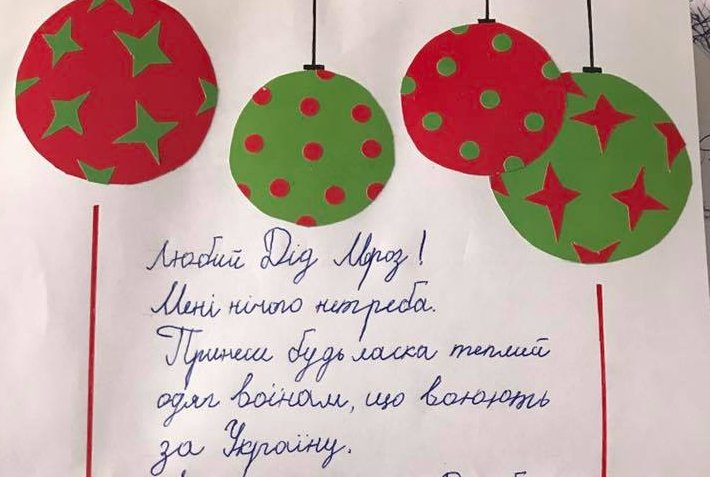 Любий Дід Мороз!
Мені нічого нетреба.
Принеси будь ласка теплий
одяг воїнам, що воюють
за Україну.